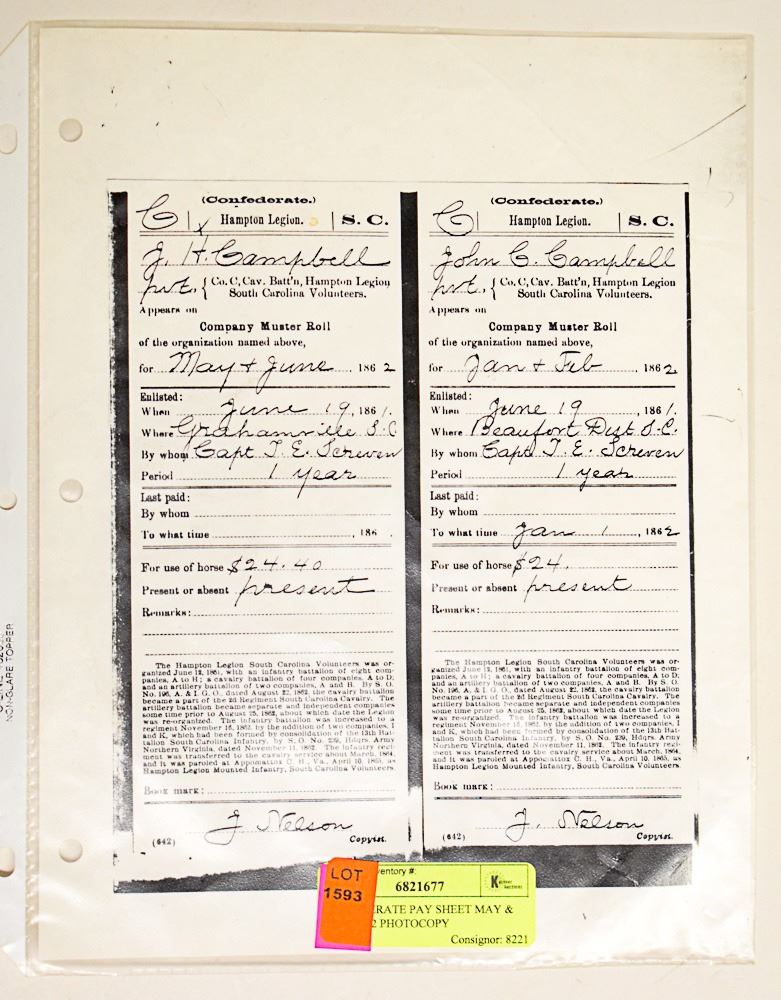 (Confederate.)
C | Hampton Legion. | S. C.
x
J. H. Campbell
pvt., { Co. C, Cav. Batt'n, Hampton Legion
South Carolina Volunteers.
Appears on
Company Muster Roll
of the organization named above,
for May & June, 1862
Enlisted:
When June 19, 1861.
Where Grahamville S.C
By whom Capt T. E. Screven
Period 1 year
Last paid:
By whom
To what time , 186 .
For use of horse $24.40
Present or absent present
Remarks:
The Hampton Legion South Carolina Volunteers was or-
ganized June 12, 1861, with an infantry battalion of eight com-
panies, A to H; a cavalry battalion of four companies, A to D;
and an artillery battalion of two companies, A and B. By S. O.
No. 196, A. & I. G. O., dated August 22, 1862, the cavalry battalion
became a part of the 2d Regiment South Carolina Cavalry. The
artillery battalion became separate and independent companies
some time prior to August 25, 1862, about which date the Legion
was re-organized. The infantry battalion was increased to a
regiment November 15, 1862, by the addition of two companies, I
and K, which had been formed by consolidation of the 13th Bat-
talion South Carolina Infantry, by S. O. No. 239, Hdqrs. Army
Northern Virginia, dated November 11, 1862. The infantry regi-
ment was transferred to the cavalry service about March, 1864,
and it was paroled at Appomattox C. H., Va., April 10, 1865, as
Hampton Legion Mounted Infantry, South Carolina Volunteers.
Book mark:
J. Nelson
(642) Copyist.
(Confederate.)
C | Hampton Legion. | S. C.
John C. Campbell
pvt., { Co. C, Cav. Batt'n, Hampton Legion
South Carolina Volunteers.
Appears on
Company Muster Roll
of the organization named above,
for Jan & Feb, 1862.
Enlisted:
When June 19, 1861.
Where Beaufort Dist S.C.
By whom Capt. T. E. Screven
Period 1 year
Last paid:
By whom
To what time Jan 1, 1862
For use of horse $24.
Present or absent present
Remarks:
The Hampton Legion South Carolina Volunteers was or-
ganized June 12, 1861, with an infantry battalion of eight com-
panies, A to H; a cavalry battalion of four companies, A to D;
and an artillery battalion of two companies, A and B. By S. O.
No. 196, A. & I. G. O., dated August 22, 1862, the cavalry battalion
became a part of the 2d Regiment South Carolina Cavalry. The
artillery battalion became separate and independent companies
some time prior to August 25, 1862, about which date the Legion
was re-organized. The infantry battalion was increased to a
regiment November 15, 1862, by the addition of two companies, I
and K, which had been formed by consolidation of the 13th Bat-
talion South Carolina Infantry, by S. O. No. 239, Hdqrs. Army
Northern Virginia, dated November 11, 1862. The infantry regi-
ment was transferred to the cavalry service about March, 1864,
and it was paroled at Appomattox C. H., Va., April 10, 1865, as
Hampton Legion Mounted Infantry, South Carolina Volunteers.
Book mark:
J. Nelson
(642) Copyist.
NON-GLARE TOPPER
LOT
1593
ventory #:
6821677
ERATE PAY SHEET MAY &
2 PHOTOCOPY
Consignor: 8221